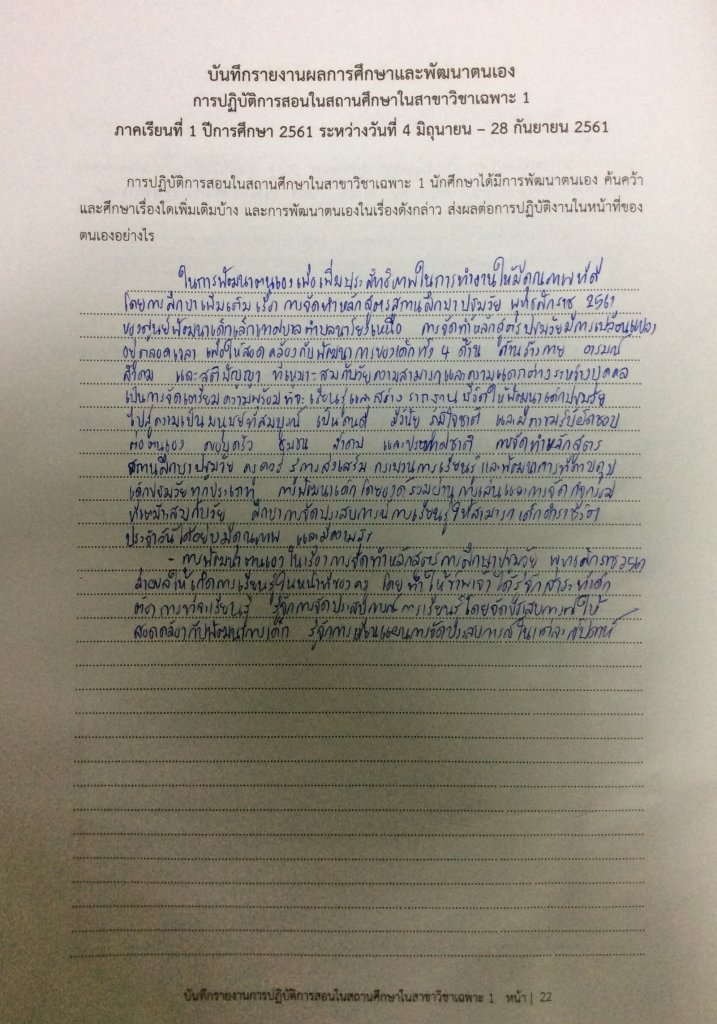 บันทึกรายงานผลการศึกษาและพัฒนาตนเอง
การปฏิบัติการสอนในสถานศึกษาในสาขาวิชาเฉพาะ 1
ภาคเรียนที่ 1 ปีการศึกษา 2561 ระหว่างวันที่ 4 มิถุนายน – 28 กันยายน 2561
การปฏิบัติการสอนในสถานศึกษาในสาขาวิชาเฉพาะ 1 นักศึกษาได้มีการพัฒนาตนเอง ค้นคว้า
และศึกษาเรื่องใดเพิ่มเติมบ้าง และการพัฒนาตนเองในเรื่องดังกล่าว ส่งผลต่อการปฏิบัติงานในหน้าที่ของ
ตนเองอย่างไร
ในการพัฒนาตนเองเพื่อเพิ่มประสิทธิภาพในการทำงานให้มีคุณภาพที่ดี
โดยการศึกษาเพิ่มเติม เรื่อง การจัดทำหลักสูตรสถานศึกษาปฐมวัย พุทธศักราช 2561
ของศูนย์พัฒนาเด็กเล็กเทศบาลตำบล การจัดทำหลักสูตรปฐมวัยมีการเปลี่ยนแปลง
อยู่ตลอดเวลา เพื่อให้สอดคล้องกับพัฒนาการของเด็กทั้ง 4 ด้าน ด้านร่างกาย อารมณ์
สังคม และสติปัญญา ที่เหมาะสมกับวัยความสามารถและความแตกต่างระหว่างบุคคล
เป็นการจัดเตรียมความพร้อมที่จะเรียนรู้และสร้างรากฐานชีวิตให้พัฒนาเด็กปฐมวัย
ไปสู่ความเป็นมนุษย์ที่สมบูรณ์ เป็นคนดี มีวินัย และมีความรับผิดชอบ
ต่อตนเอง ครอบครัว ชุมชน สังคม และประเทศชาติ การจัดทำหลักสูตร
สถานศึกษาปฐมวัย ควร การส่งเสริม กระบวนการเรียนรู้ และพัฒนาการที่
เด็กปฐมวัยทุกประเภท การพัฒนาเด็กโดยองค์รวมผ่านการเล่นและการจัดกิจกรรม
ที่เหมาะสมกับวัย การจัดประสบการณ์การเรียนรู้ให้สามารถ
ประจำวันได้อย่างมีคุณภาพ และมีความสุข
- การพัฒนาตนเอง ในเรื่องการจัดทำหลักสูตรการศึกษาปฐมวัย พุทธศักราช 2561
ส่งผลให้เกิดการเรียนรู้ในหน้าที่ของครู โดยทำให้ข้าพเจ้าได้รู้จักสาระที่เด็ก
ต้องการที่จะเรียนรู้ รู้จักการจัดประสบการณ์การเรียนรู้โดยจัดประสบการณ์ให้
สอดคล้องกับพัฒนาการเด็ก รู้จักการเขียนแผนการจัดประสบการณ์ในแต่ละสัปดาห์
บันทึกรายงานการปฏิบัติการสอนในสถานศึกษาในสาขาวิชาเฉพาะ 1 หน้า | 22